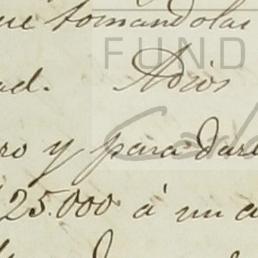 ue tomandolas
FUND
ad. Adios
ro y para dare
25.000 á un a